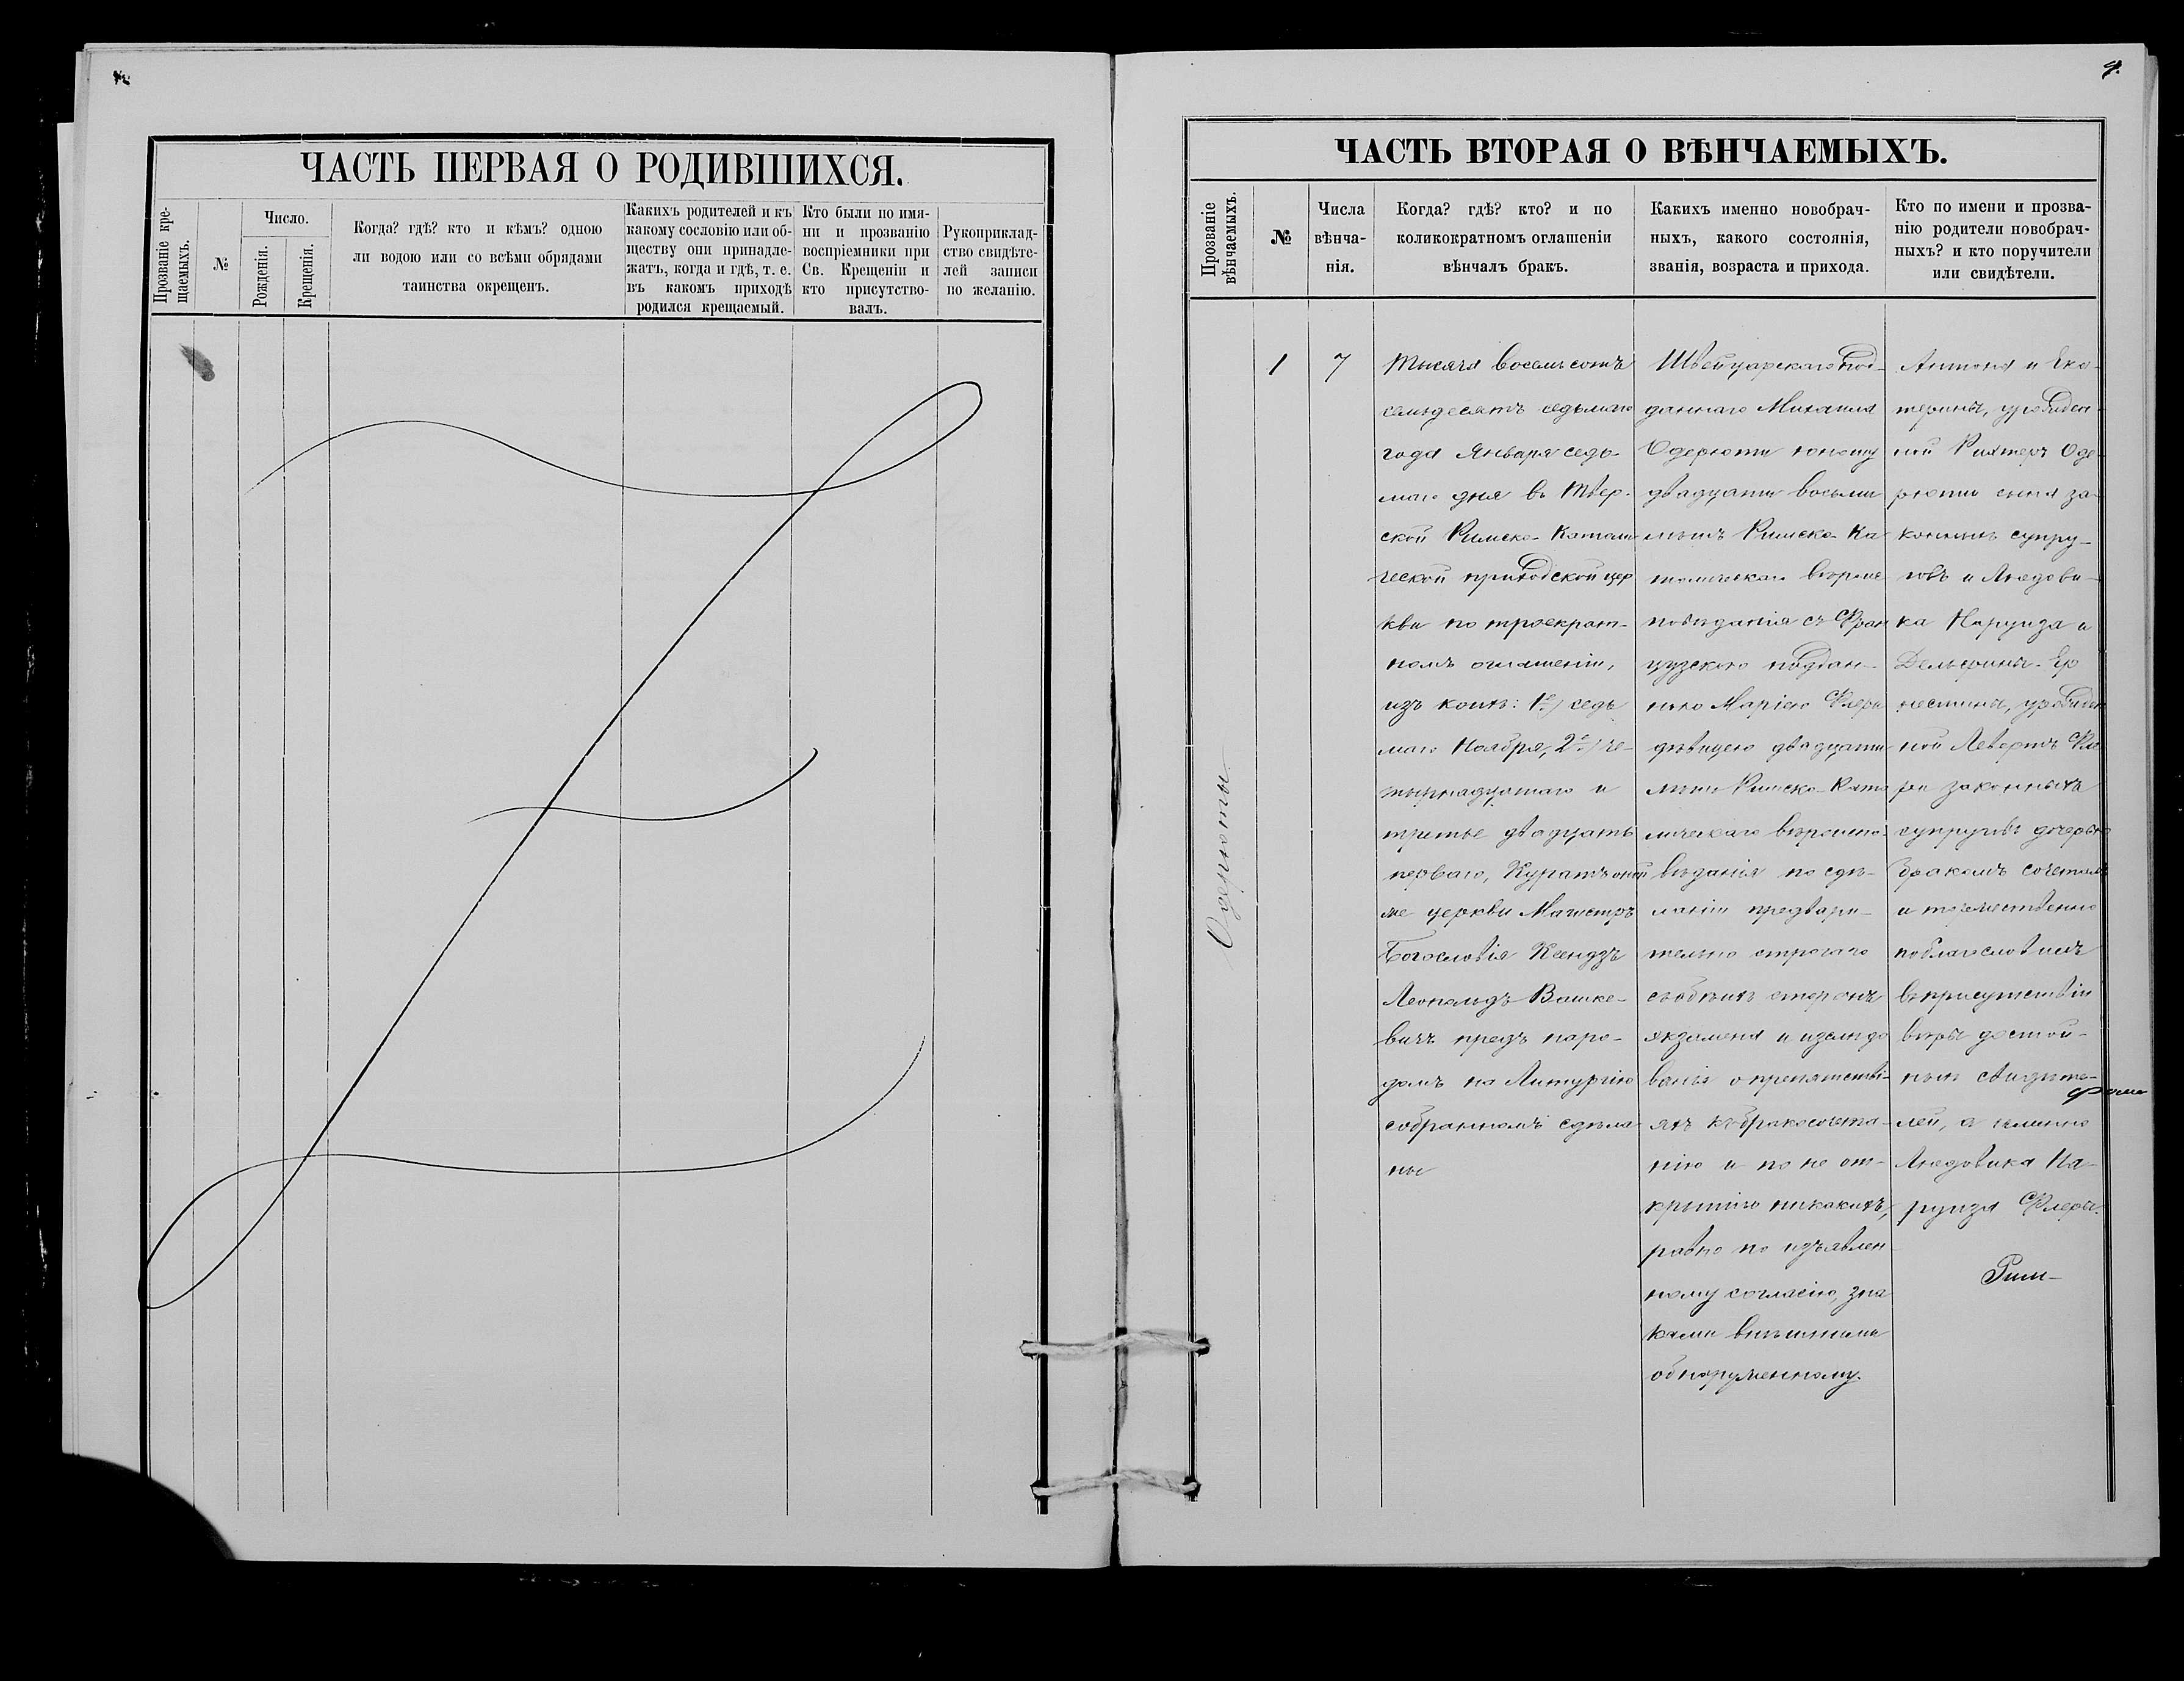 ЧАСТЬ ПЕРВАЯ О РОДИВШИХСЯ.
Прозваніе кре-
щаемыхъ.
№
Число.
Рожденія.
Крещенія.
Когда? гдѣ? кто и кѣмъ? одною
ли водою или со всѣми обрядами
таинства окрещенъ.
Какихъ родителей и къ
какому сословію или об-
ществу они принадле-
жатъ, когда и гдѣ, т. е.
въ какомъ приходѣ
родился крещаемый.
Кто были по имя-
ни и прозванію
воспріемники при
Св. Крещеніи и
кто присутство-
валъ.
Рукоприклад-
ство свидѣте-
лей записи
по желанію.
ЧАСТЬ ВТОРАЯ О ВѢНЧАЕМЫХЪ.
Прозваніе
вѣнчаемыхъ.
№
Числа
вѣнча-
нія.
Когда? гдѣ? кто? и по
коликократномъ оглашеніи
вѣнчалъ бракъ.
Какихъ именно новобрач-
ныхъ, какого состоянія,
званія, возраста и прихода.
Кто по имени и прозва-
нію родители новобрач-
ныхъ? и кто поручители
или свидѣтели.
Одерюты
1
7
Тысяча восемьсотъ
семьдесятъ седьмаго
года Января седь
маго дня въ Твер-
ской Римско-Катали
ческой приходской цер
кви по троекрат-
номъ оглашеніи,
изъ коихъ: 1е/ седь
маго Ноября, 2е/ че-
тырнадцатаго и
третье двадцать
перваго, Куратъ оной
же церкви Магистръ
Богословія Ксендзъ
Леопольдъ Вашке-
вичъ предъ наро-
домъ на Литургію
собраннымъ сдѣла
ны
Швейцарскаго под-
даннаго Михаила
Одерюти юношу
двадцати восьми
лѣтъ Римско-Ка
толическаго вѣроис
повѣданія съ Фран
цузскою поддан-
ною Маріею Флери
дѣвицею двадцати
лѣтъ Римско-Като
лическаго вѣроиспо-
вѣданія по сдѣ-
ланіи предвари-
тельно строгаго
съ обѣихъ сторонъ
экзамена и изслѣдо
ванія о препятстві-
яхъ къ бракосочета-
нію и по не от-
крытію никакихъ,
равно по изъявлен
ному согласію, зна
ками внѣшними
обнаруженному.
Антона и Ека-
терины, урожден-
ной Рихтеръ Оде-
рюти сына за-
конныхъ супру-
говъ и Людови-
ка Нарциза и
Дельфины-Ер
нестины, урожден
ной Левертъ Фле
ри законныхъ
супруговъ дочерью
бракомъ сочеталъ
и торжественно
поблагословилъ
въ присутствіи
вѣры достой-
ныхъ свидѣте-
лей, а именно
Людовика На-
рциза Флери.
Рим-